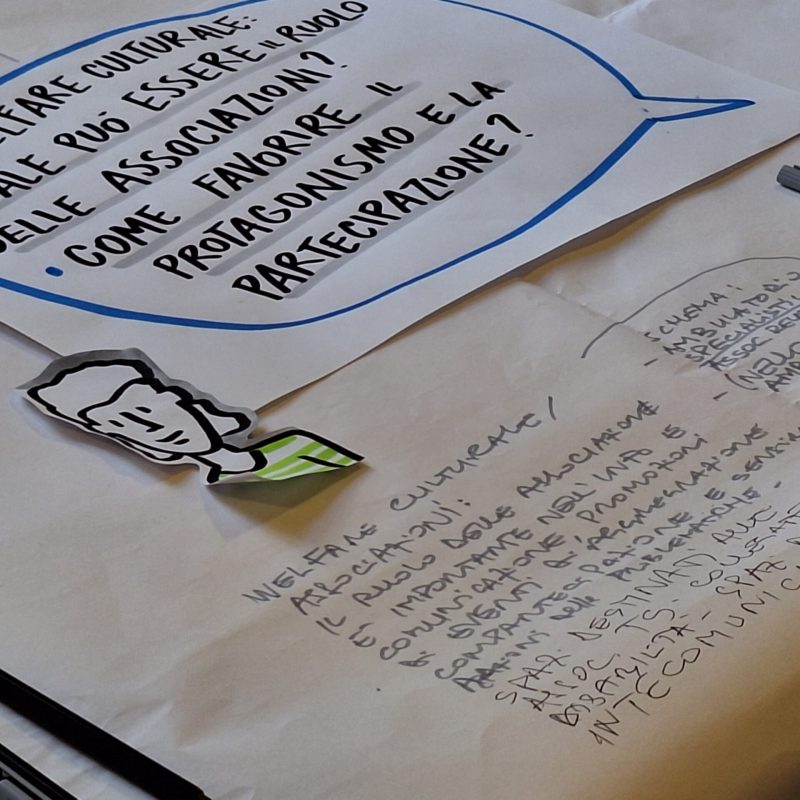 WELFARE CULTURALE:
QUALE PUÒ ESSERE IL RUOLO
DELLE ASSOCIAZIONI?
• COME FAVORIRE IL
PROTAGONISMO E LA
PARTECIPAZIONE?
SCHEMA:
- AMBULATORI
SPECIALISTI
ASSOC
- (NELLO
WELFARE CULTURALE/
ASSOCIAZIONI:
IL RUOLO DELLE ASSOCIAZIONE
E' IMPORTANTE NELL'INFO E
COMUNICAZIONE, PROMOZIONI
DI EVENTI DI AGGREGAZIONE
COMPARTECIPAZIONE E
AZIONI delle PROBLEMATICHE -
SPAZI DESTINATI ALLE
ASSOC. TS. COLLEGATE
DISABILITÀ - SPAZI
INTECOMUNIC